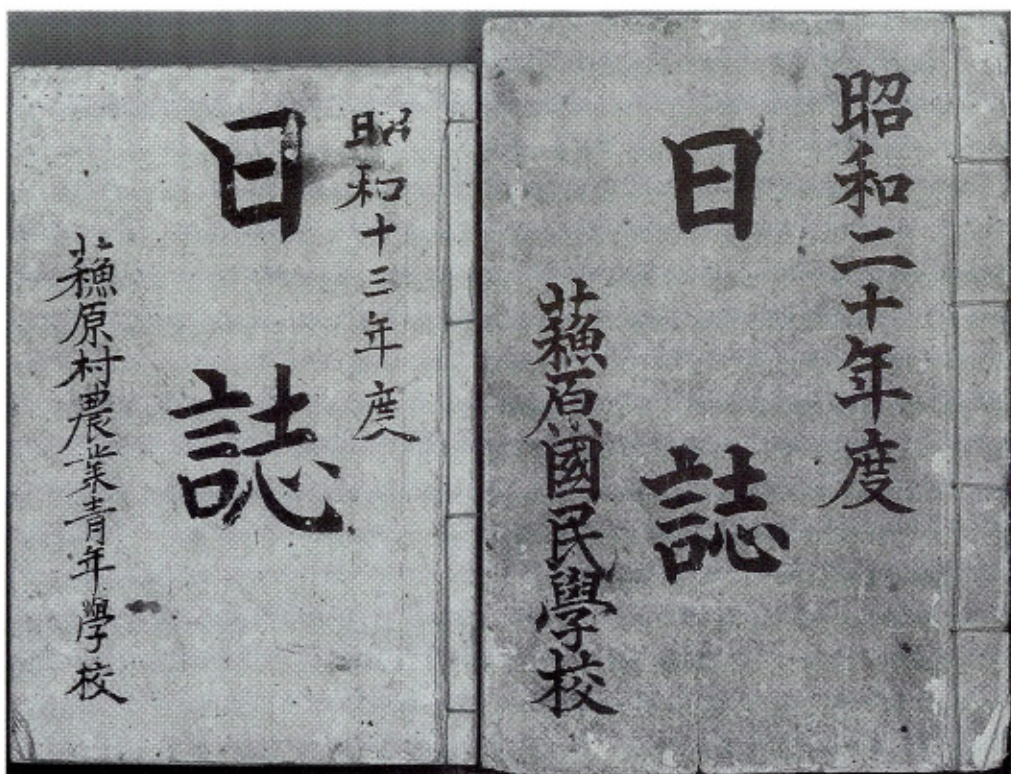 昭和二十年度
日誌
蘓原國民學校
昭和十三年度
日誌
蘓原村農業青年學校